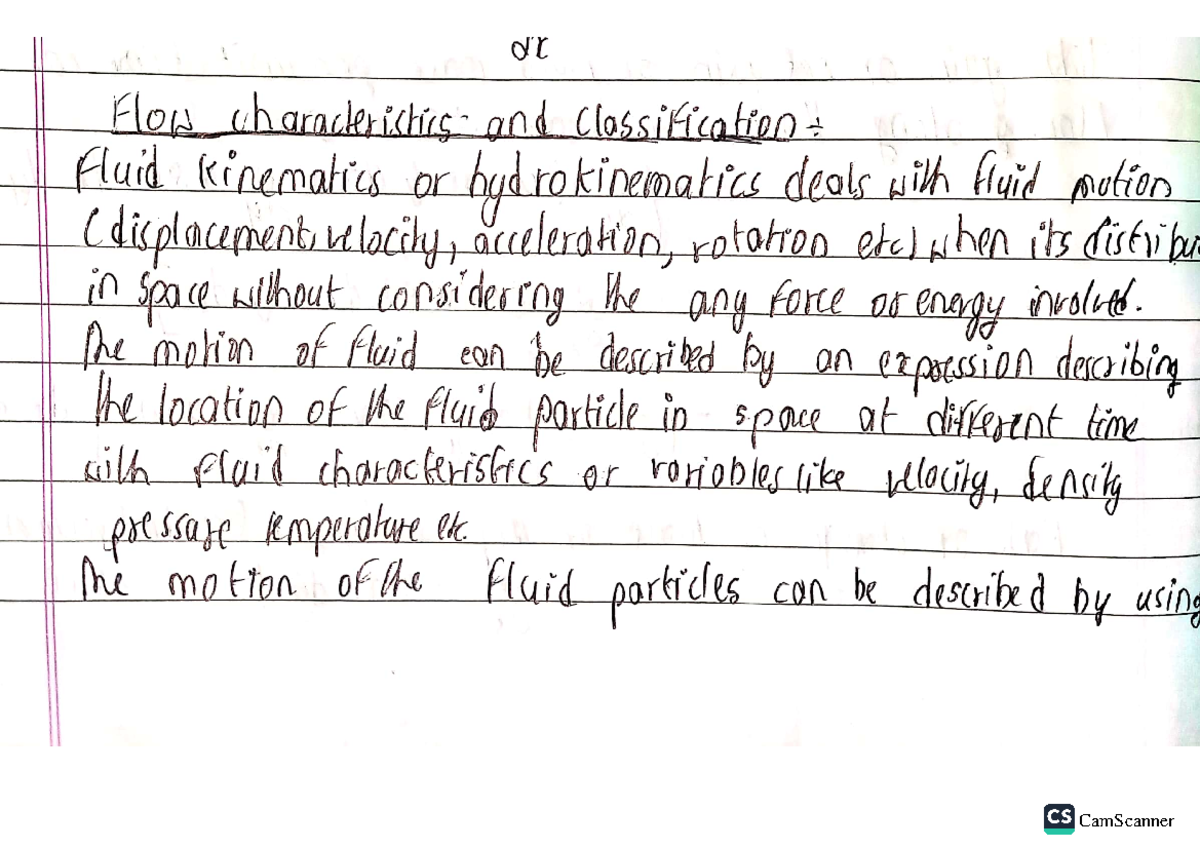 dt
Flow characteristics and classification ÷
Fluid kinematics or hydrokinematics deals with fluid motion
(displacement, velocity, acceleration, rotation etc) when its distribu
in space without considering the any force or energy involved.
The motion of fluid can be described by an expression describing
the location of the fluid particle in space at different time
with fluid characteristics or variables like velocity, density
pressure temperature etc.
The motion of the fluid particles can be described by using
CS CamScanner